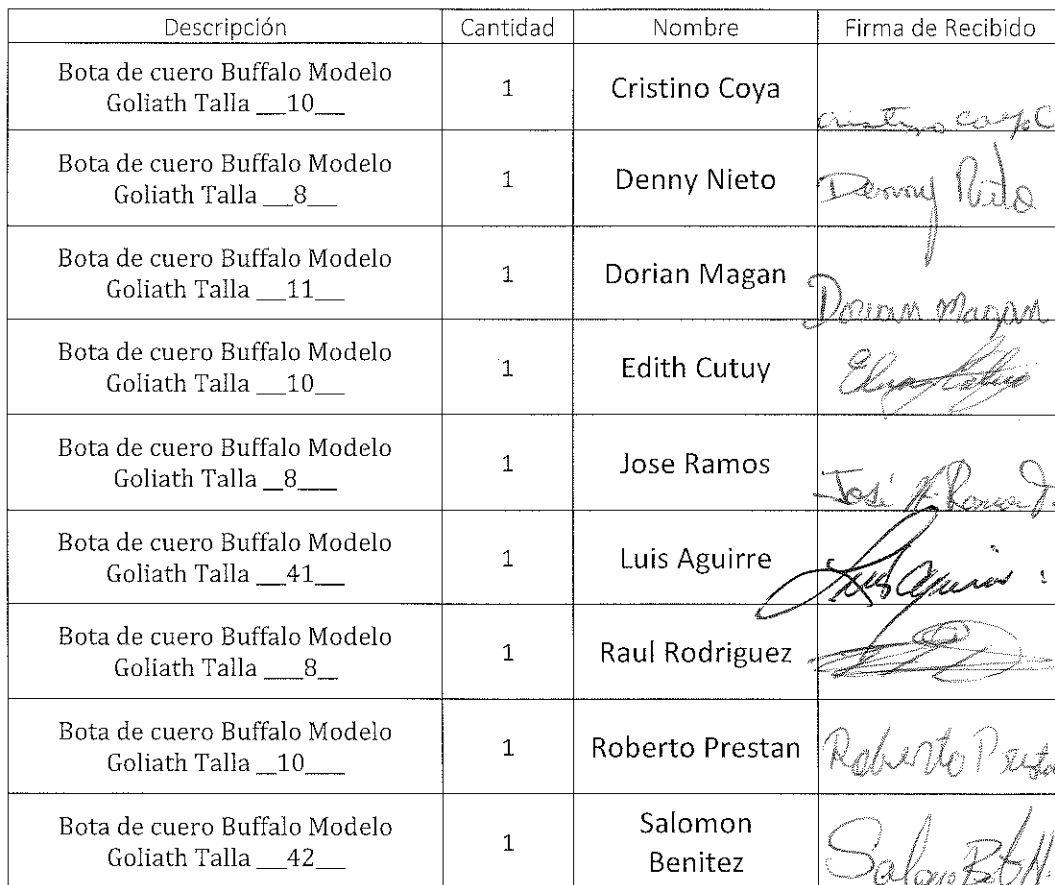 Descripción Cantidad Nombre Firma de Recibido
Bota de cuero Buffalo Modelo
Goliath Talla __10__ 1 Cristino Coya
Bota de cuero Buffalo Modelo
Goliath Talla __8__ 1 Denny Nieto Denny Nieto
Bota de cuero Buffalo Modelo
Goliath Talla __11__ 1 Dorian Magan Dorian Magan
Bota de cuero Buffalo Modelo
Goliath Talla __10__ 1 Edith Cutuy
Bota de cuero Buffalo Modelo
Goliath Talla __8___ 1 Jose Ramos José
Bota de cuero Buffalo Modelo
Goliath Talla __41__ 1 Luis Aguirre Luis Aguirre
Bota de cuero Buffalo Modelo
Goliath Talla ___8_ 1 Raul Rodriguez
Bota de cuero Buffalo Modelo
Goliath Talla __10___ 1 Roberto Prestan Roberto
Bota de cuero Buffalo Modelo
Goliath Talla __42__ 1 Salomon
Benitez